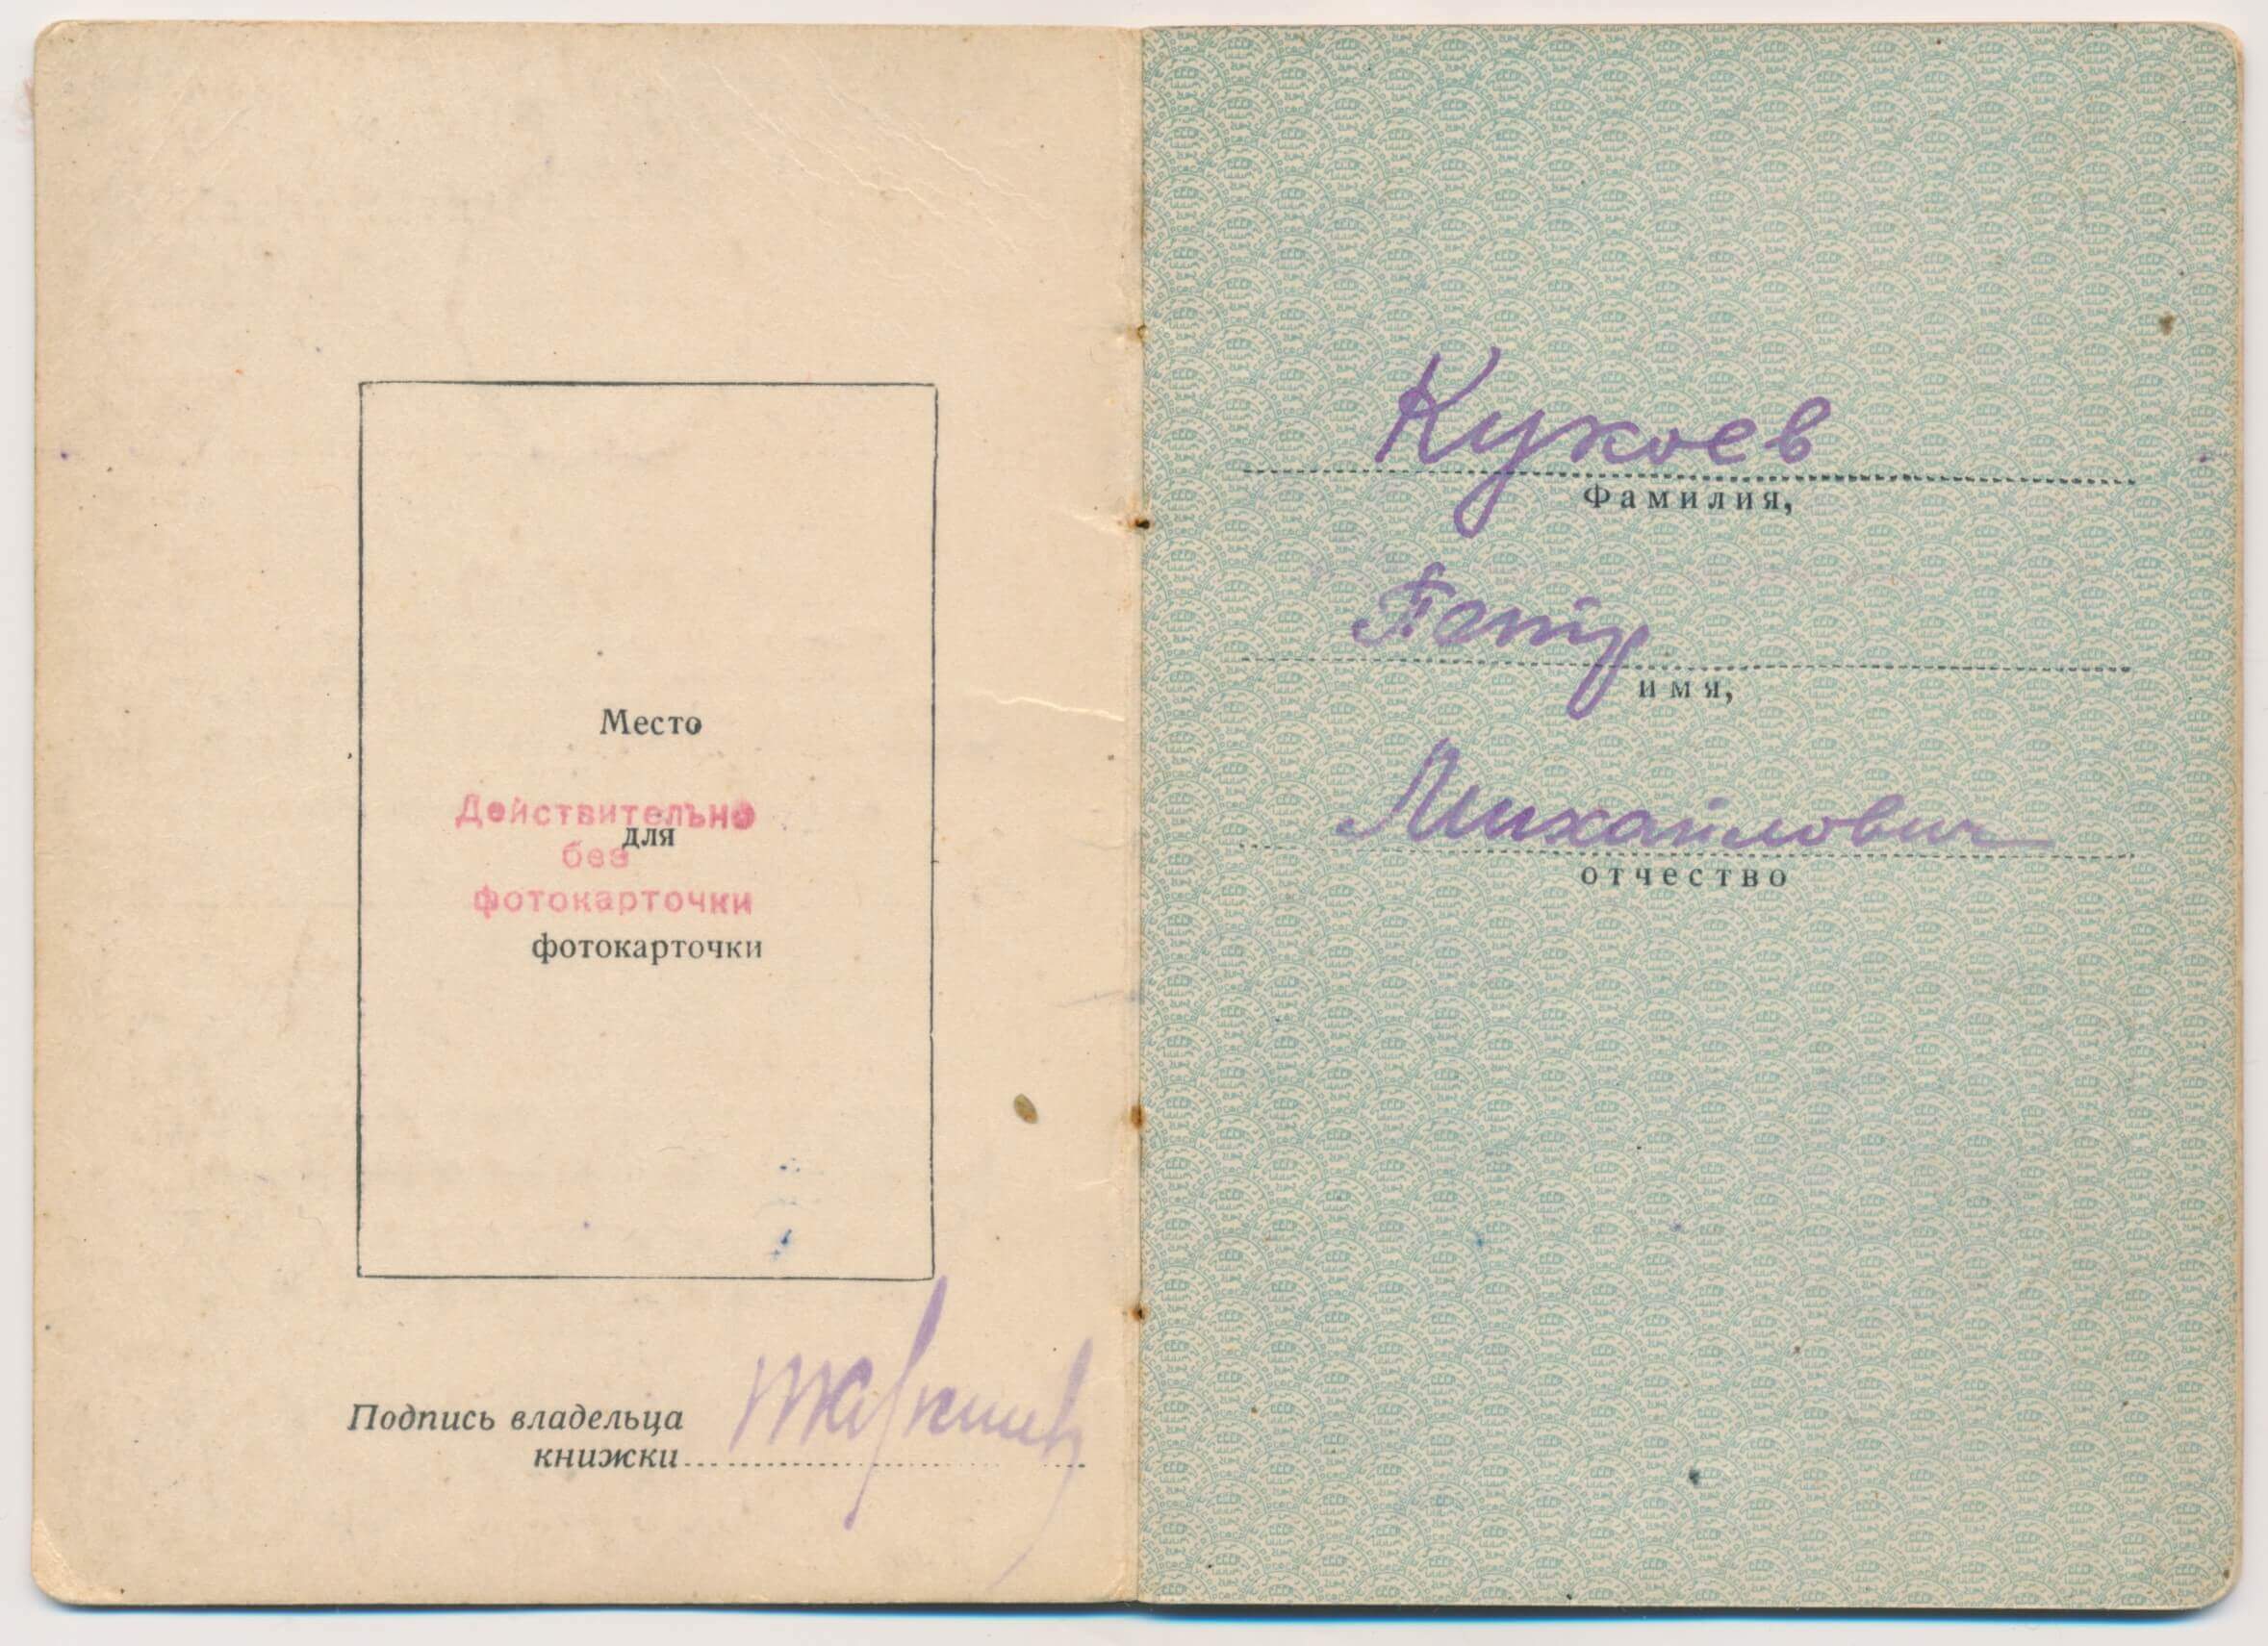 Место
Действительно
для
без
фотокарточки
фотокарточки
Подпись владельца
книжки
Кукоев
Фамилия,
Петр
имя,
Михайлович
отчество